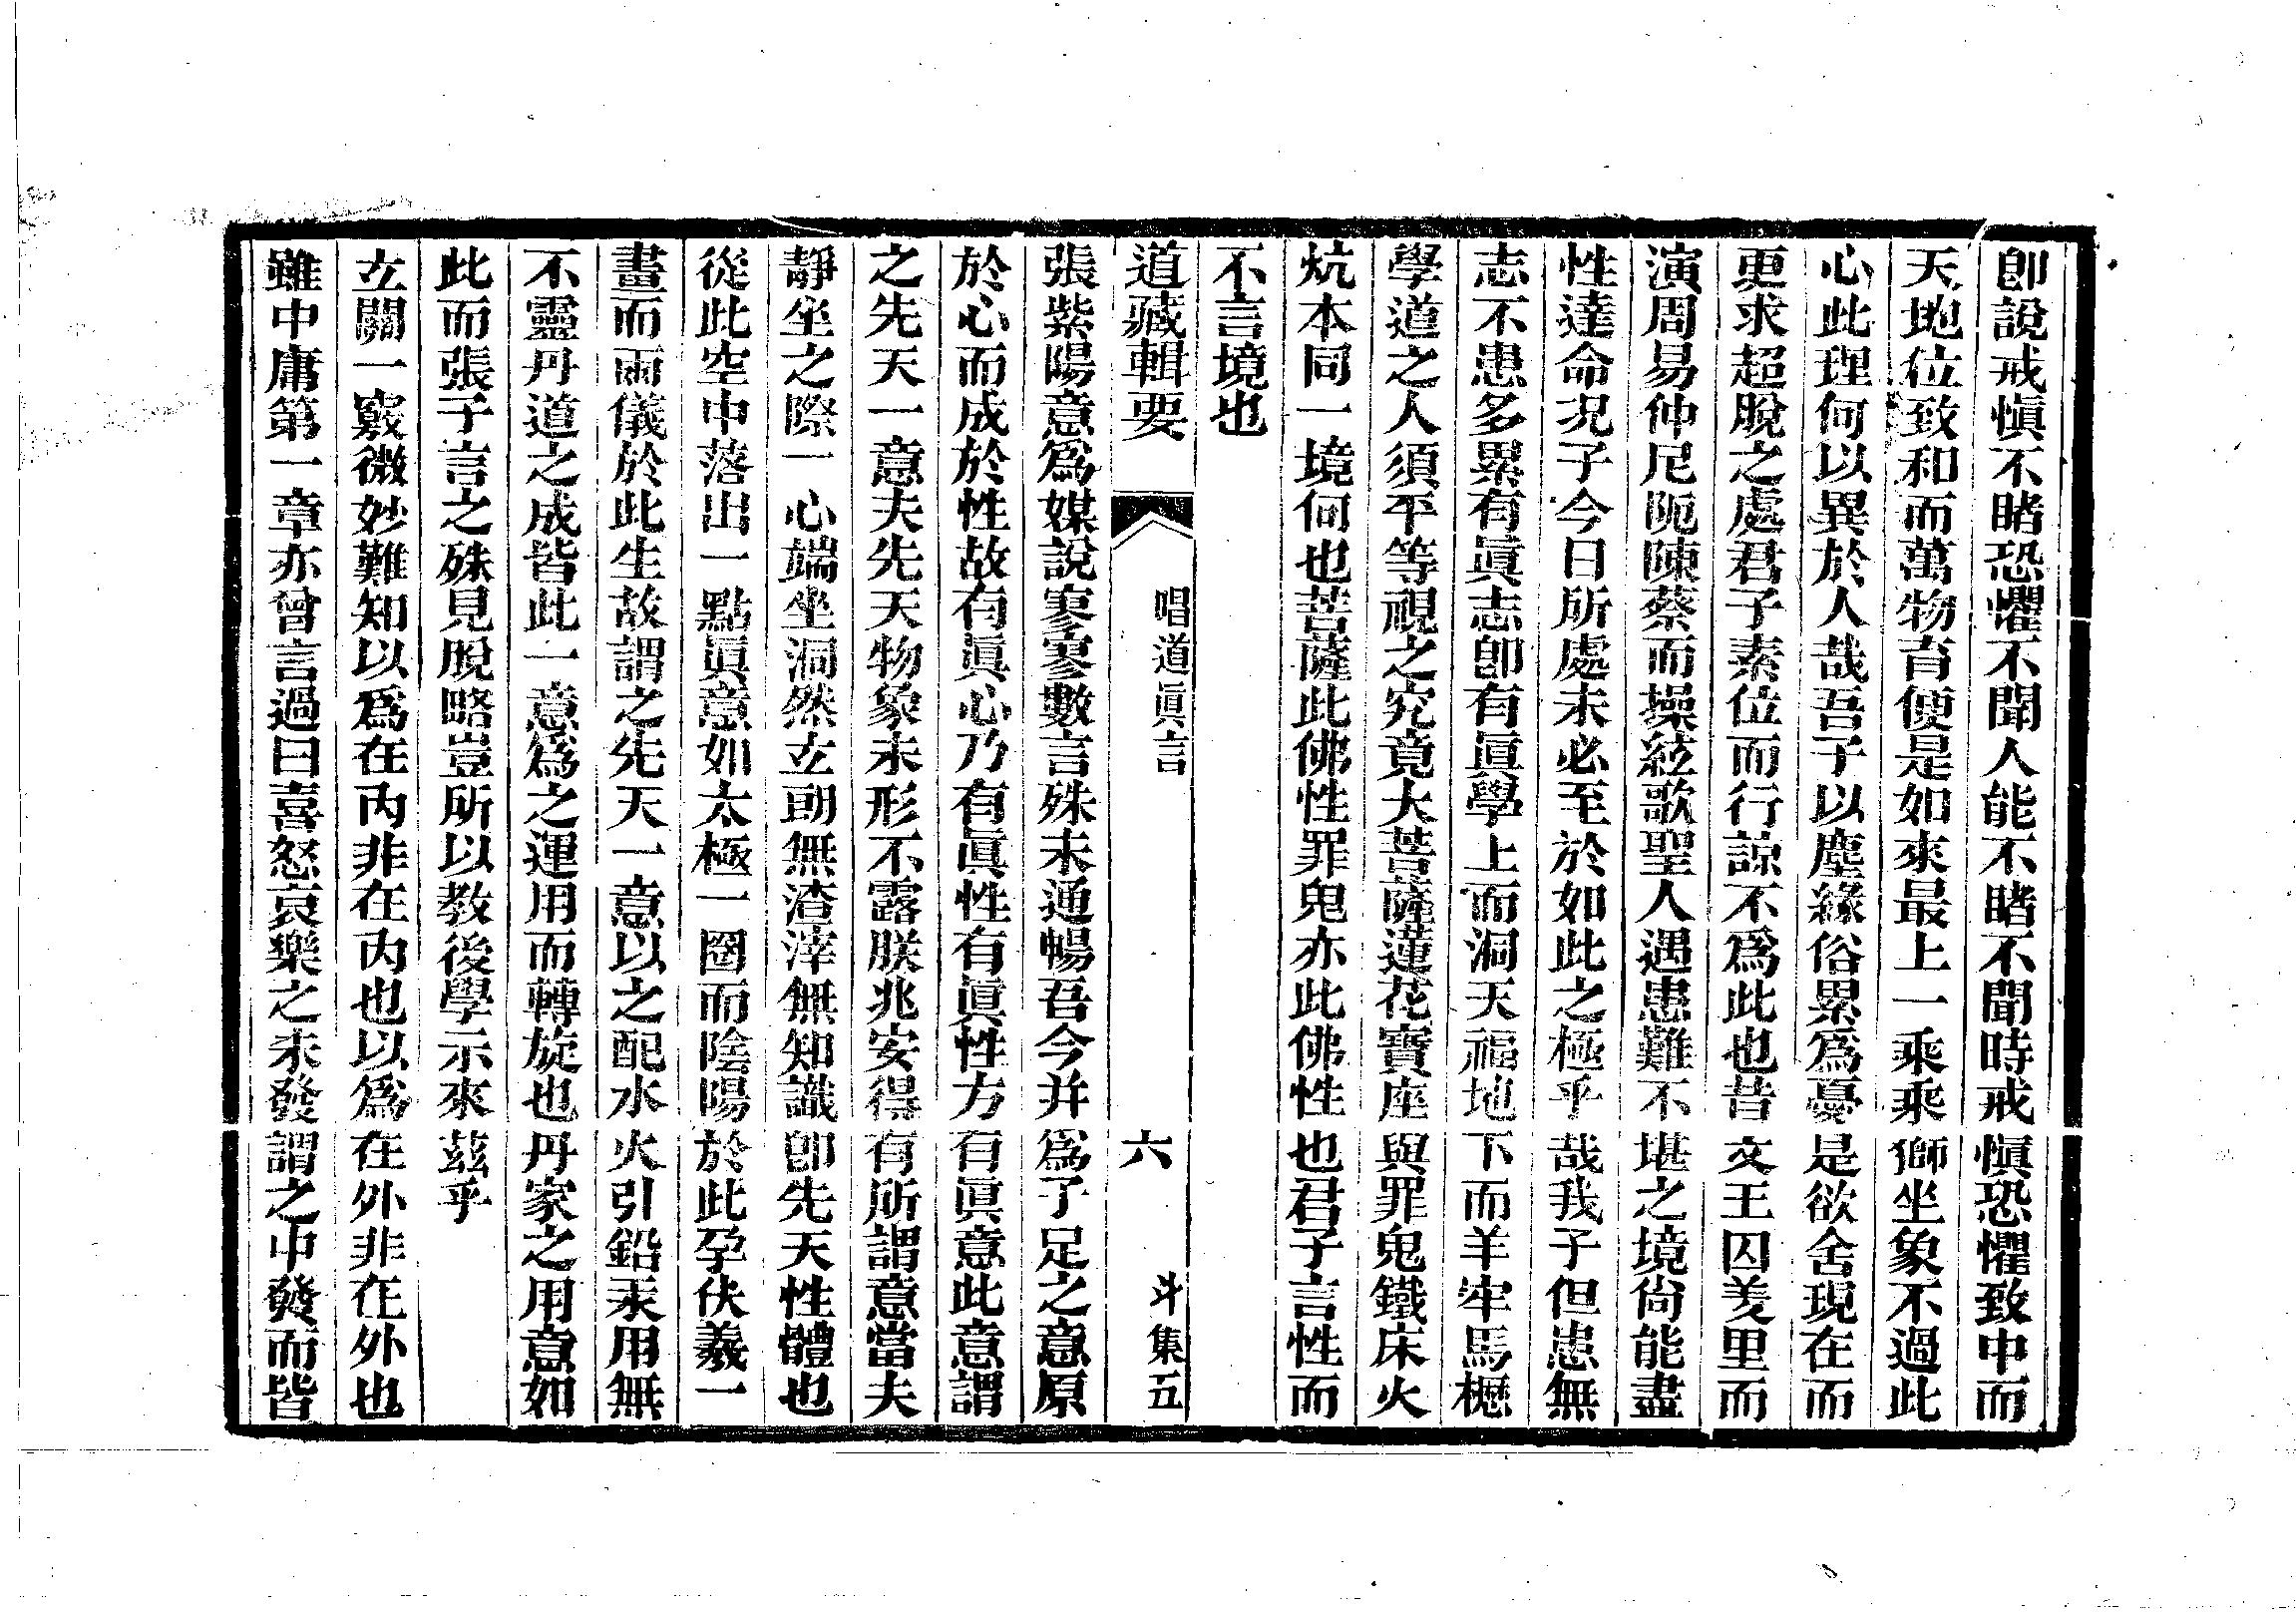 卽說戒愼不睹恐懼不聞人能不睹不聞時戒愼恐懼致中而
天地位致和而萬物育便是如來最上一乘乘獅坐象不過此
心此理何以異於人哉吾子以塵緣俗累爲憂是欲舍現在而
更求超脫之處君子素位而行諒不爲此也昔文王囚羑里而
演周易仲尼阨陳蔡而操絃歌聖人遇患難不堪之境尙能盡
性達命况子今日所處未必至於如此之極乎哉我子但患無
志不患多累有眞志卽有眞學上而洞天福地下而羊牢馬櫪
學道之人須平等視之究竟大菩薩蓮花寶座與罪鬼鐵床火
炕本同一境何也菩薩此佛性罪鬼亦此佛性也君子言性而
不言境也
道藏輯要 唱道眞言 六 斗集五
張紫陽意爲媒說寥寥數言殊未通暢吾今幷爲子足之意原
於心而成於性故有眞心乃有眞性有眞性方有眞意此意謂
之先天一意夫先天物象未形不露朕兆安得有所謂意當夫
靜坐之際一心端坐洞然立朗無渣滓無知識卽先天性體也
從此空中落出一點眞意如太極一圈而陰陽於此孕伏羲一
畫而兩儀於此生故謂之先天一意以之配水火引鉛汞用無
不靈丹道之成皆此一意爲之運用而轉旋也丹家之用意如
此而張子言之殊見脫略豈所以教後學示來茲乎
立關一竅微妙難知以爲在內非在內也以爲在外非在外也
雖中庸第一章亦曾言過曰喜怒哀樂之未發謂之中發而皆